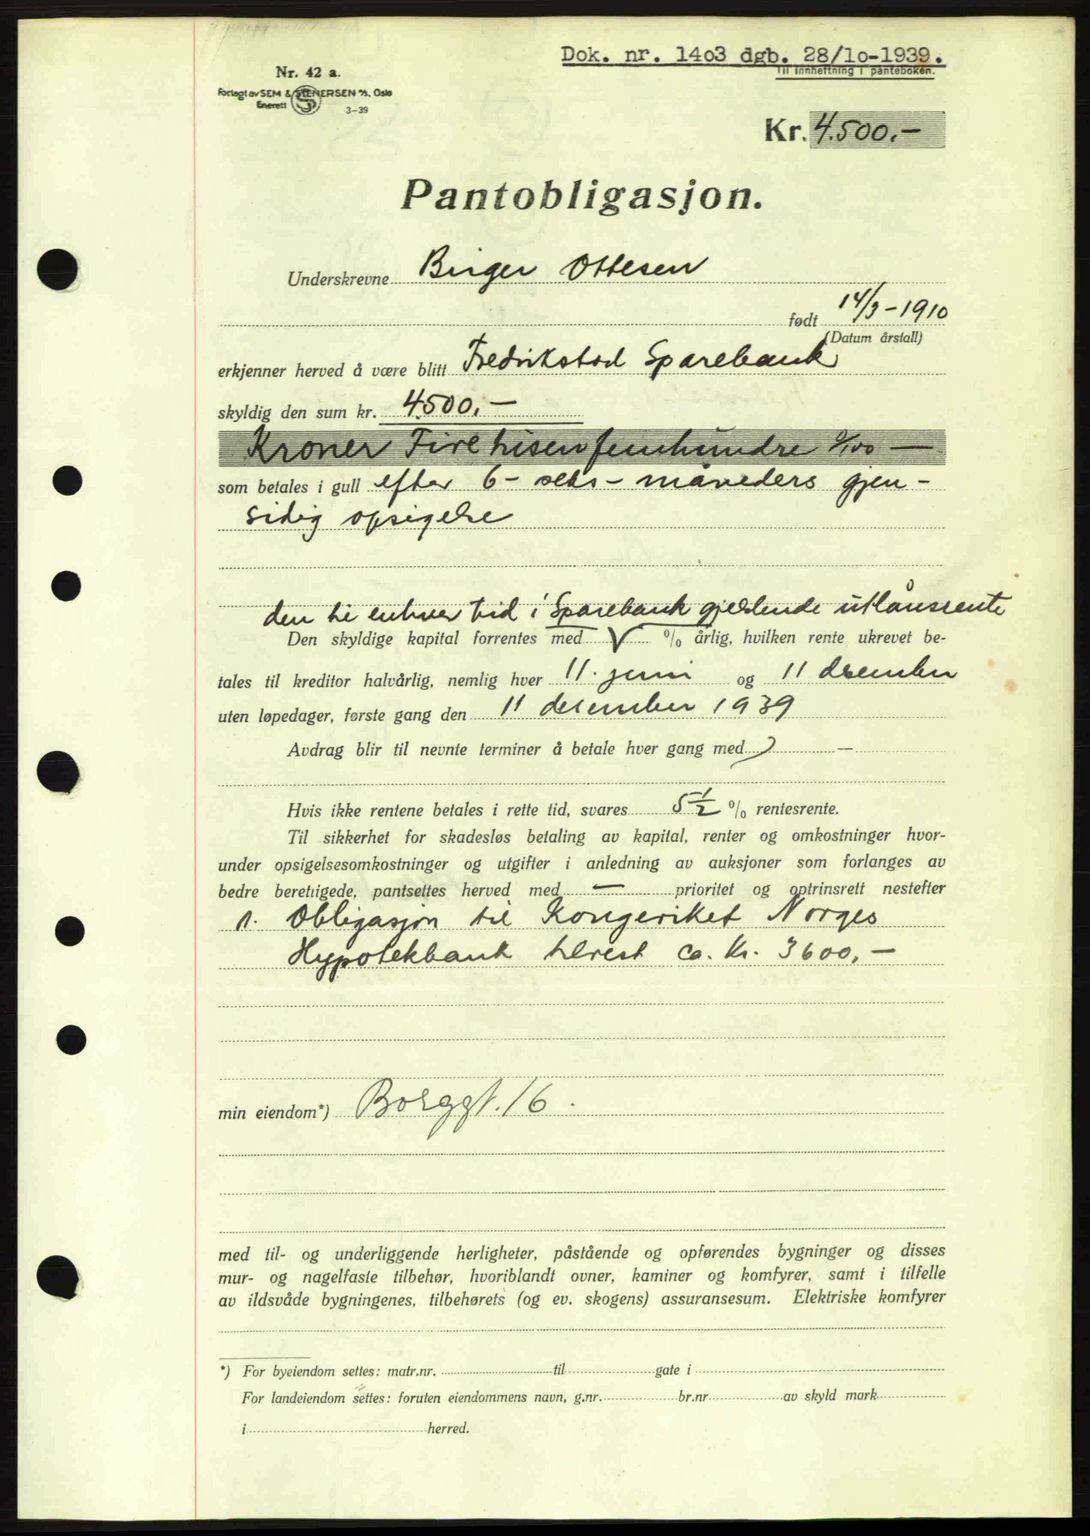 Dok. nr. 1403 dgb. 28/10-1939.
Til innheftning i panteboken.
Nr. 42 a.
Forlagt av SEM & STENERSEN A/S, Oslo
Enerett
3-39
Kr. 4.500,-
Pantobligasjon.
Underskrevne Birger Ottesen
født 14/3-1910
(Datum årstall)
erkjenner herved å være blitt Fredrikstad Sparebank
skyldig den sum kr. 4500,-
Kroner Fire tusen femhundre 0/100 —
som betales i gull efter 6- seks- måneders gjen-
sidig opsigelse
den til enhver tid i Sparebank gjeldende utlånsrente
Den skyldige kapital forrentes med % årlig, hvilken rente ukrevet be-
tales til kreditor halvårlig, nemlig hver 11. juni og 11 desember
uten løpedager, første gang den 11 desember 1939
Avdrag blir til nevnte terminer å betale hver gang med —
Hvis ikke rentene betales i rette tid, svares 5 1/2 % rentesrente.
Til sikkerhet for skadesløs betaling av kapital, renter og omkostninger hvor-
under opsigelsesomkostninger og utgifter i anledning av auksjoner som forlanges av
bedre berettigede, pantsettes herved med — prioritet og optrinsrett nestefter
1. Obligasjon til Kongeriket Norges
Hypotekbank tilrest ca. kr. 3600,-
min eiendom*) Borggt. 16.
med til- og underliggende herligheter, påstående og opførendes bygninger og disses
mur- og nagelfaste tilbehør, hvoriblandt ovner, kaminer og komfyrer, samt i tilfelle
av ildsvåde bygningenes, tilbehørets (og ev. skogens) assuransesum. Elektriske komfyrer
*) For byeiendom settes: matr.nr. til gate i
For landeiendom settes: foruten eiendommens navn, g.nr. br.nr av skyld mark
i herred.